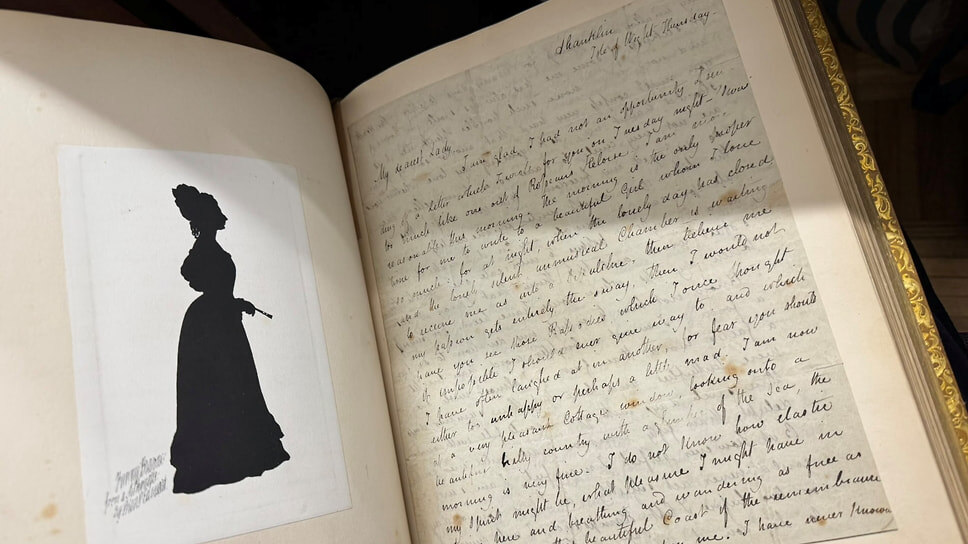 Shanklin
Isle of Wight Thursday.
My dearest Lady,
I am glad I had not an opportunity
ding off a Letter which I wrote for you on Tuesday night—'twas
too much like one out of Rousseau's Heloise. I am more
reasonable this morning. The morning is the only proper
time for me to write to a beautiful Girl whom I love
so much: for at night, when the lonely day has closed
and the lonely silent unmusical Chamber is waiting
to receive me as into a Sepulchre, then believe me
my passion gets entirely the sway, then I would not
have you see those Rapsodies which I once thought
it impossible I should ever give way to and which
I have often laughed at in another for fear you should
either too unhappy or perhaps a little mad. I am now
at a very pleasant Cottage window, looking onto a
beautiful hilly country with a glimpse of the sea, the
morning is very fine. I do not know how elastic
my spirit might be, what pleasure I might have in
here and breathing and wandering as free as
beautiful Coast if the remembrance
me. I have never known